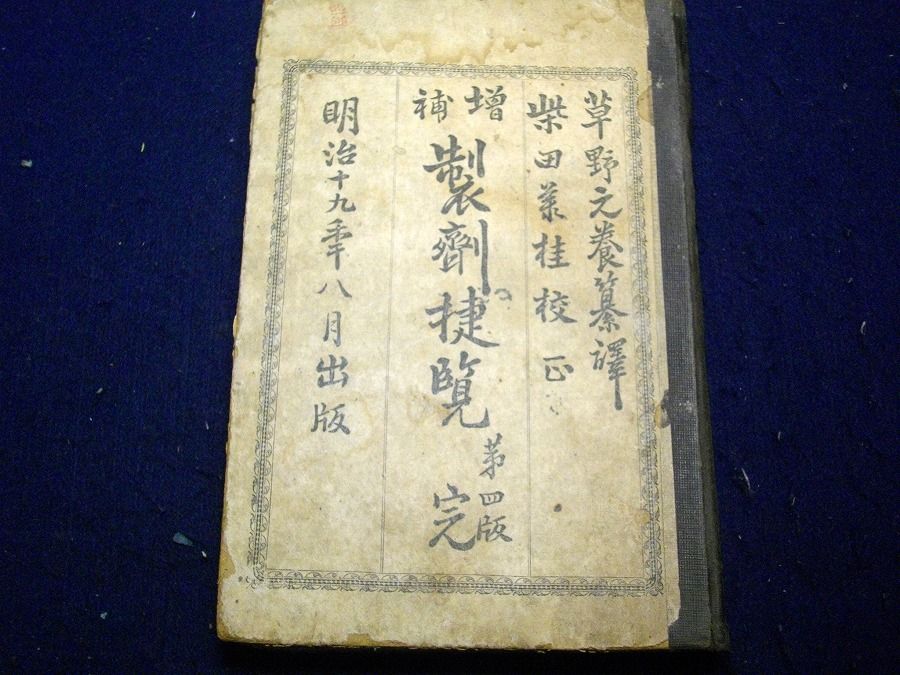 草野元養纂譯
柴田承桂校正
增補
製劑捷覽 第四版 完
明治十九年八月出版